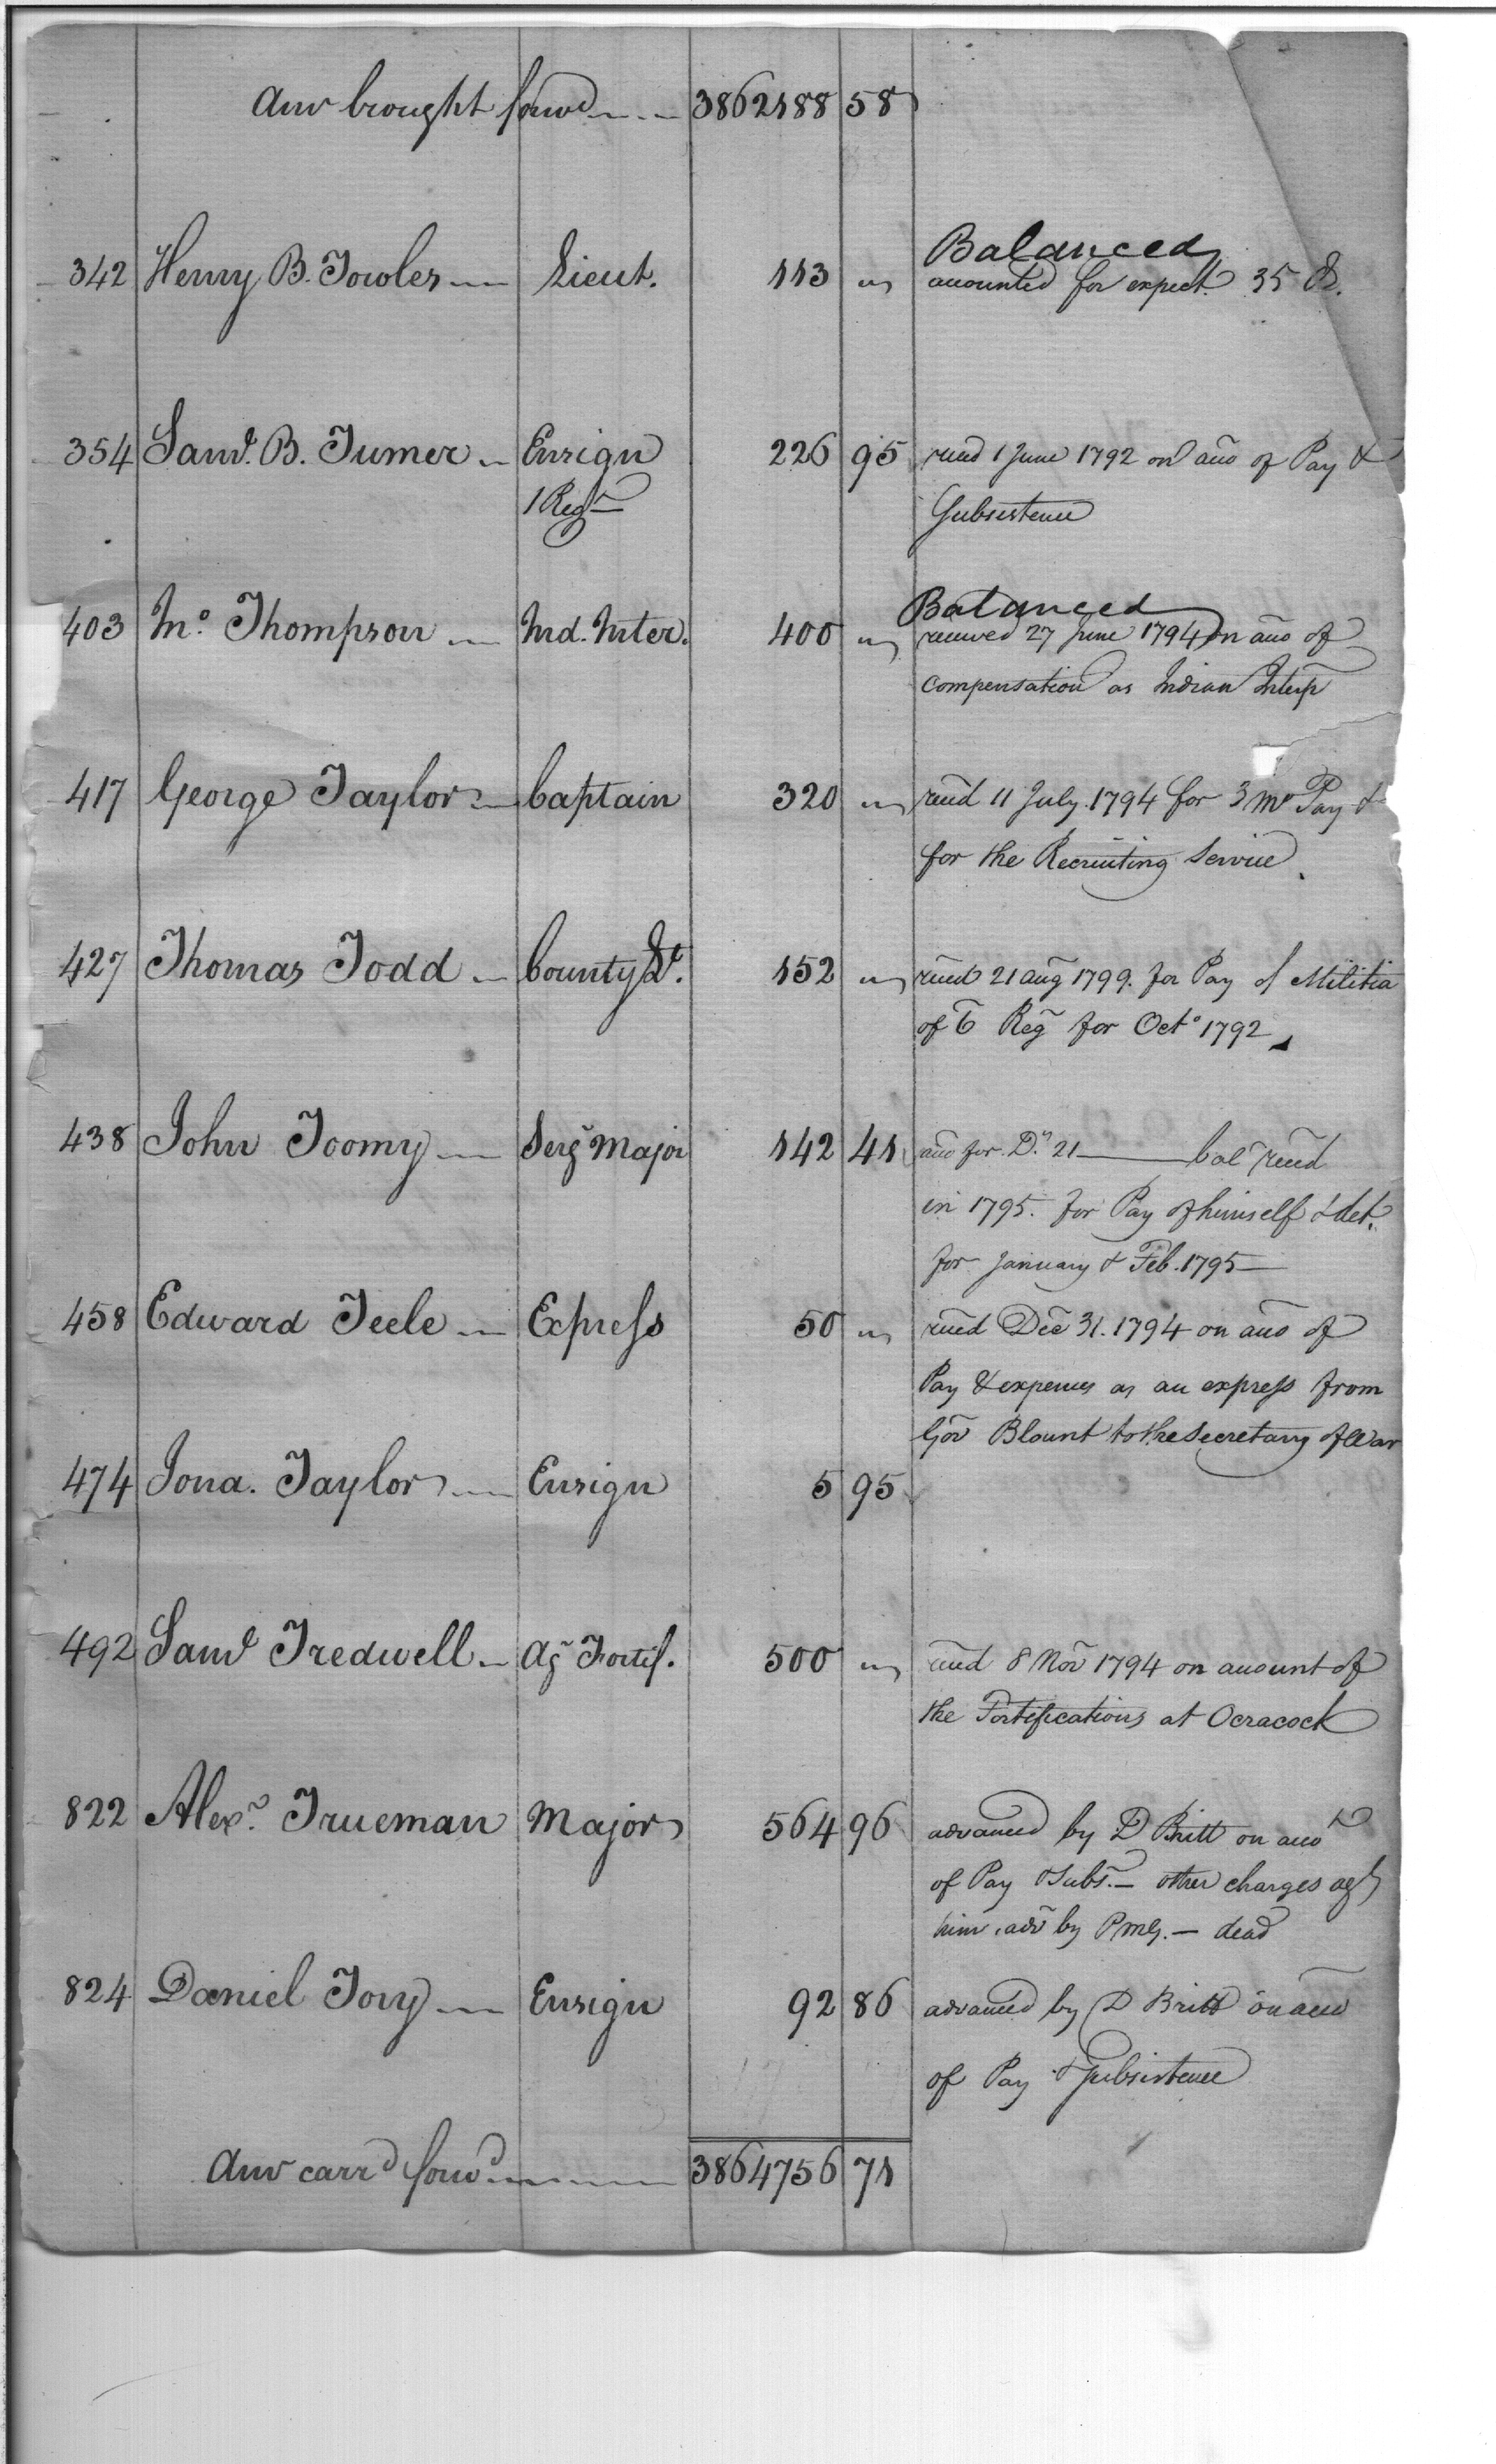 Amo brought forwd 3862188 58
Balanced
342 Henry B. Towles Lieut. 113 " accounted for expect. 35 Ds.
354 Saml. B. Turner Ensign 226 95 recd 1 June 1792 on acco of Pay &
1 Regt Subsistence
Balanced
403 Mo. Thompson Ind. Inter. 400 " received 27 June 1794 on acco of
compensation as Indian Interp
417 George Taylor Captain 320 " recd 11 July 1794 for 3 mo Pay &
for the Recruiting Service
427 Thomas Todd County Lt. 152 " recd 21 aug 1799. for Pay of Militia
of Reg for Octo 1792
438 John Toomy Serg Major 142 41 acco for Ds. 21 bal recd
in 1795. for Pay of himself & det.
for January & Feb. 1795
458 Edward Teele Express 50 " recd Dec 31. 1794 on acco of
Pay & expences as an express from
Gov Blount to the Secretary of War
474 Jona. Taylor Ensign 5 95
492 Saml Tredwell Ag Fortif. 500 " recd 8 Nov 1794 on account of
the Fortifications at Ocracock
822 Alexr. Trueman Major 564 96 advanced by D Britt on acco
of Pay & Subs. – other charges agt
him, adv by PMG. – dead
824 Daniel Tory Ensign 92 86 advanced by D Britt on acco
of Pay & Subsistence
Amo carrd forwd 3864756 71